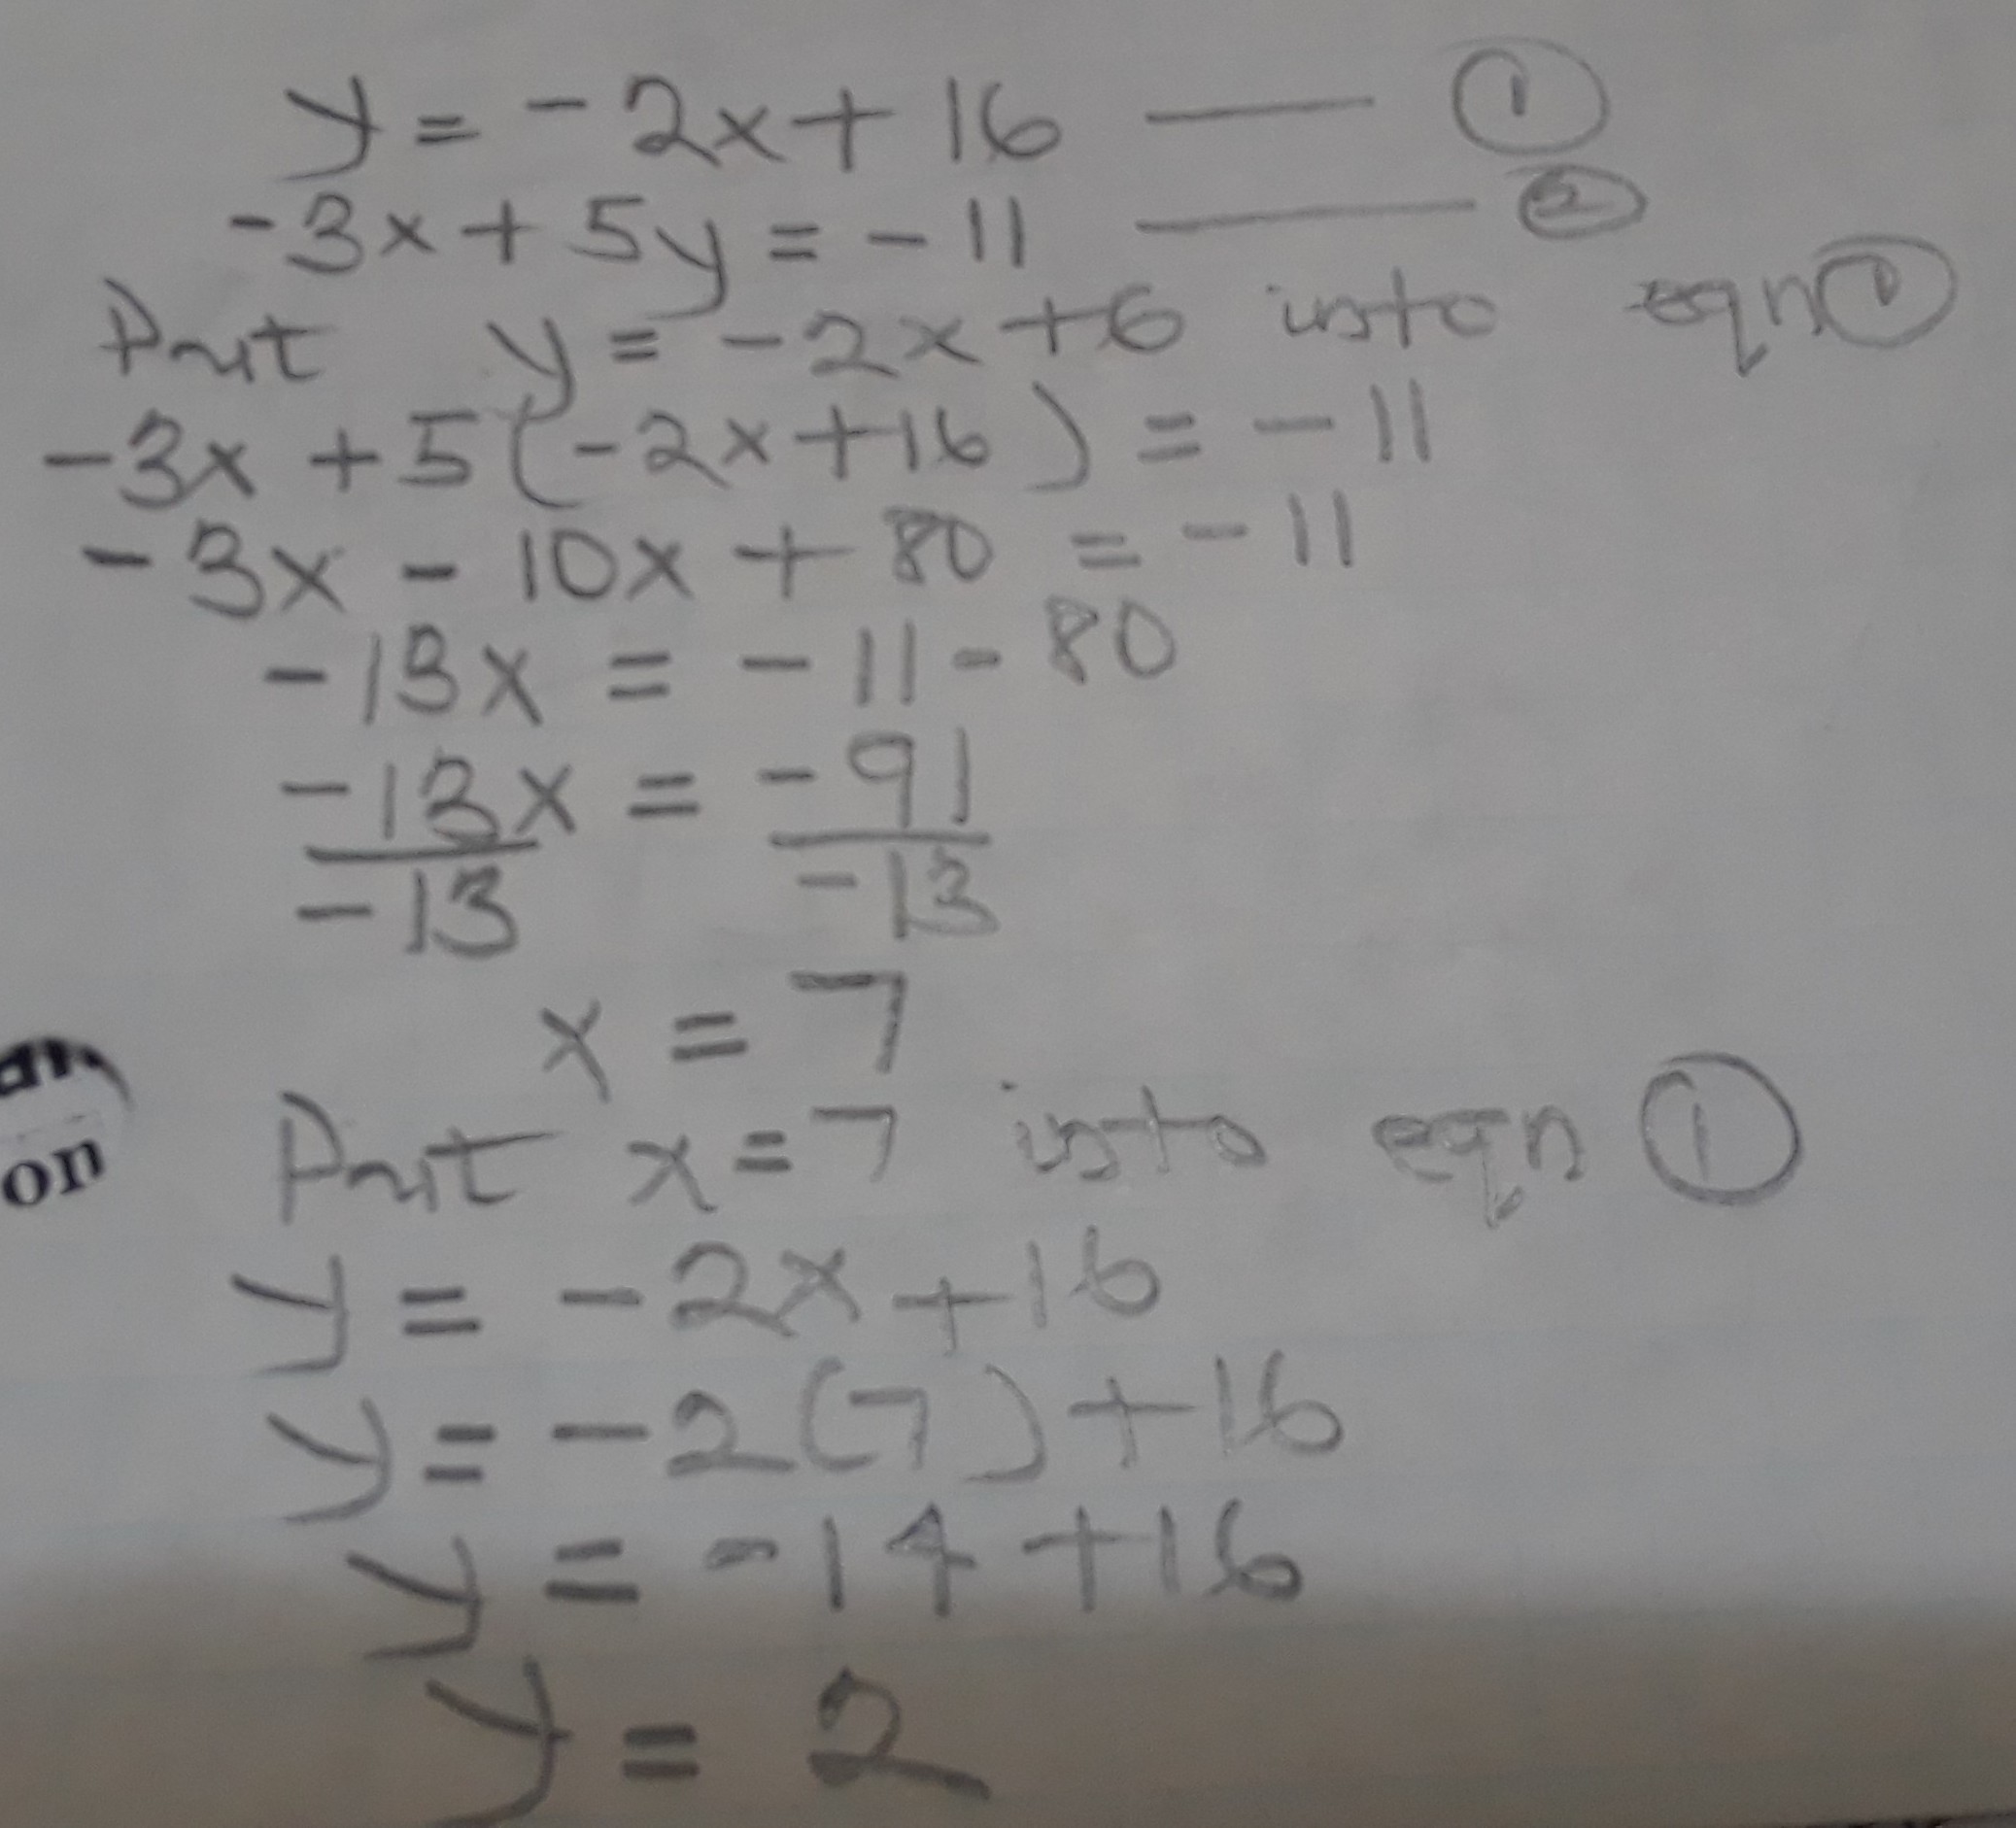 y = -2x + 16 —— ①
-3x + 5y = -11 —— ②
Put y = -2x + 6 into eqn ①
-3x + 5(-2x + 16) = -11
-3x - 10x + 80 = -11
-13x = -11 - 80
-13x = -91
-13 -13
x = 7
on
Put x = 7 into eqn ①
y = -2x + 16
y = -2(7) + 16
y = -14 + 16
y = 2